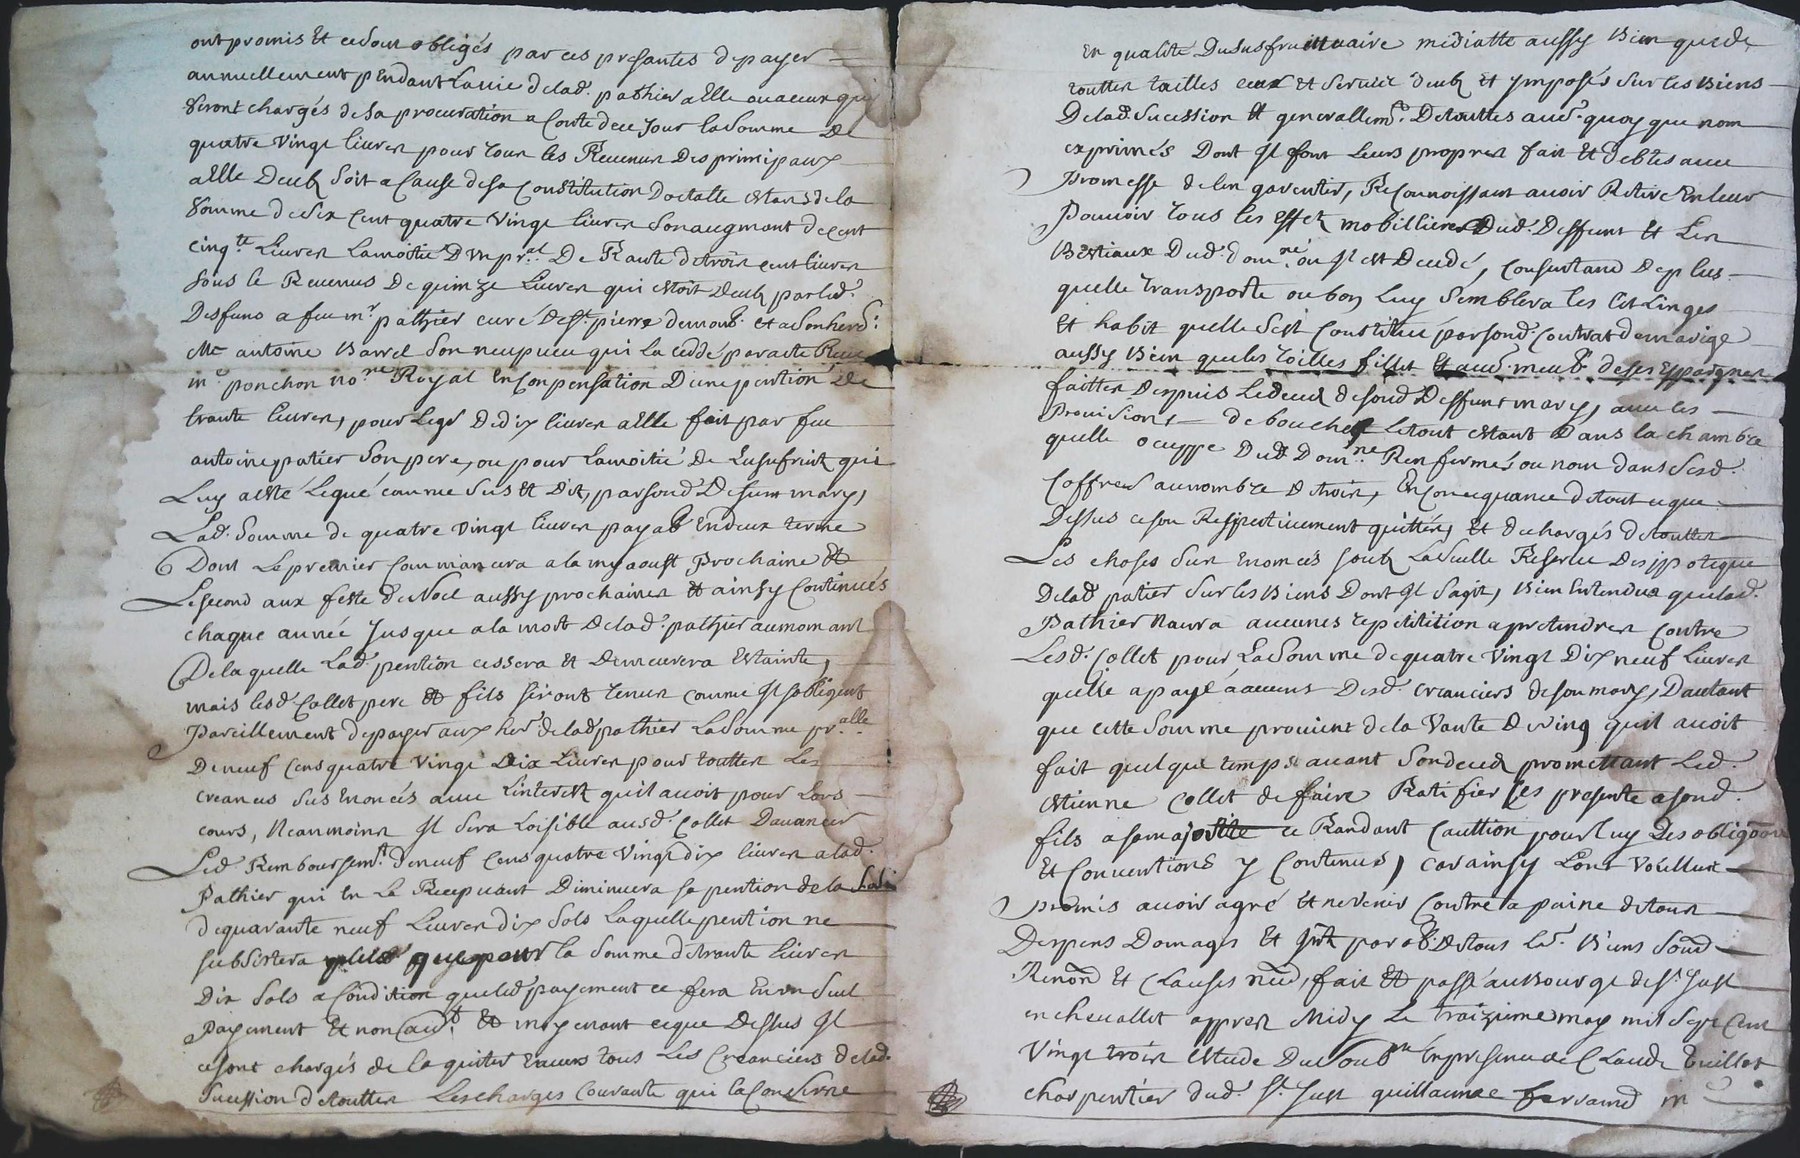 ont promis Et ce sont obligés par ces presantes de payer
annuellement pendant La vie de lad. pathier a Elle ou a ceux qui
seront chargés de sa procuration a Conte de ce Jour la somme de
quatre vingt livres pour tous les Revenus des prinsipaux
a Elle deub soit a Cause de sa Constitution doctalle estans de la
somme de six cent quatre vingt livres son augmant de cent
cinq.te Livres Lamoitié D'un pr.al De Rante de trois cent livres
sous le Revenus De quinze Livres qui estoit deub par led.
Desfuns a feu m.r pathier curé de S.t pierre et a son her.
M.e antoine Barrel son nepueu qui la ceddé par acte Receu
m.e ponchon no.re Royal En Conpensation D'une pention de
trante livres, pour Legs De dix livres a Elle fait par feu
antoine patier son pere, ou pour Lamoitié De Lusufruit qui
Luy a esté Legué comme sus Et Dit, par sond. Desfunt mary,
Lad. somme de quatre vingt livres payab. En deux terme
Dont Le premier Commancera a la my aoust Prochaine Et
Le second aux feste de Noel aussy prochaines Et ainsy Continués
chaque année Jusque a la mort de lad. pathier au momant
De laquelle Lad. pention cessera Et demeurera Estainte,
mais lesd. Collet pere Et fils seront tenus comme Il sobligent
Pareillement de payer aux her. de lad. pathier La somme pr.alle
De neuf Cens quatre vingt dix Livres pour touttes Les
creances sus Enoncés avec Linterest quil auoit pour Lors
cours, Neanmoins Il sera Loisible ausd. Collet Dauancer
Led. Remboursem.t de neuf Cens quatre vingt dix livres a lad.
Pathier qui En Le Recepuant Diminuera sa pention de la
de quarante neuf Livres dix sols Laquelle pention ne
subsistera plus que pour la somme de trante Livres
Dix sols a Condition que led. payement ce fera En un seul
Payement Et non Et moyenant ce que Dessus Il
ce sont chargés de la quiter Enuers tous Les Creanciers de lad.
Sucession de touttes Les charges Courante qui la Conserne
En qualité Dusufruittuaire mediatte aussy Bien que de
touttes tailles Et seruice deub Et ymposés sur les Biens
De lad. Sucession Et generallem.t De touttes au.e quoy que nom
exprimés Dont Il font Leurs propres fait Et debtes auec
Promesse de len garentir, Reconnoissant auoir Retiré En leur
Pouuoir tous les Effet mobilliers Dud. Desfunt Et Les
Bestiaux Dud. dom.né ou Il est Decedé, Consentand De plus
quelle transporte ou bon Luy semblera les Lit Linges
Et habit quelle sest Constitué par sond. Contrat de mariage
aussy Bien que les toilles fillet Et au.e meub. de ses Espargnes
faittes Despuis Le deced de sond. Desfunt mary, auec les
Prouisions de bouche Le tout estant dans la chambre
quelle ocuppe Dud. Dom.ne Renfermés ou nom dans sesd.
Coffres au nombre de trois, En Consequance de tout ce que
Dessus ce son Respectiuement quittés, Et dechargés de touttes
Les choses sus Enoncés soub La seulle Reserue Des ypoteque
De lad. patier sur les Biens Dont Il sagit, Bien Entendus que lad.
Pathier Naura aucunes repetition a pretendres Contre
Lesd. Collet pour La somme de quatre vingt Dix neuf Liures
quelle a payé a aucuns Desd. creanciers de son mary, Dautant
que cette somme prouient de la vante De vins quil auoit
fait quelque temps auant son deced promettant Led.
Estienne Collet de faire Ratifier les presente a sond.
fils a sa majorité ce Randant Caution pour luy Des obligaons
Et Conuentions y Contenus, Car ainsy Lont voullus
promis auoir agré Et ne venir Contre a paine de tous
Despens Domages Et Int. par ob. De tous Les. Biens soud.
Renon Et Clauses neces, fait Et passé au bourg de S.t Just
en cheuallet appres Midy Le traizieme may mil sept Cent
vingt trois Estude Du soub.ne En presence de Claude
charpentier dud. S.t Just guillaume